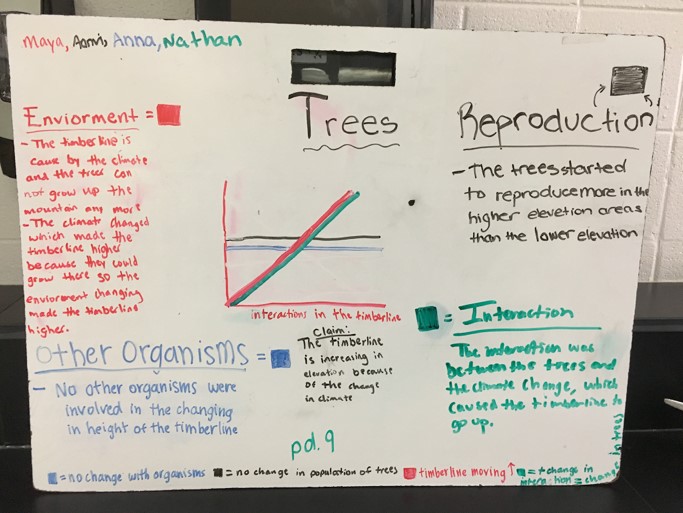 Maya, Aarni, Anna, Nathan
Trees
Enviorment =
- The timberline is
cause by the climate
and the trees can
not grow up the
mountain any more
- The climate changed
which made the
timberline higher
because they could
grow there so the
enviorment changing
made the timberline
higher.
Reproduction
- The trees started
to reproduce more in the
higher elevetion areas
than the lower elevation
interactions in the timberline
Other Organisms =
- No other organisms were
involved in the changing
in height of the timberline
Claim:
The timberline
is increasing in
elevation because
of the change
in climate
= Interaction
The interaction was
between the trees and
the climate change, which
caused the timberline to
go up.
pd. 9
= no change with organisms
= no change in population of trees
timberline moving ↑
= + change in
interaction = change
in trees